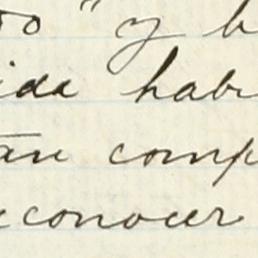 oo" y h
ida hab
an comp
conocer